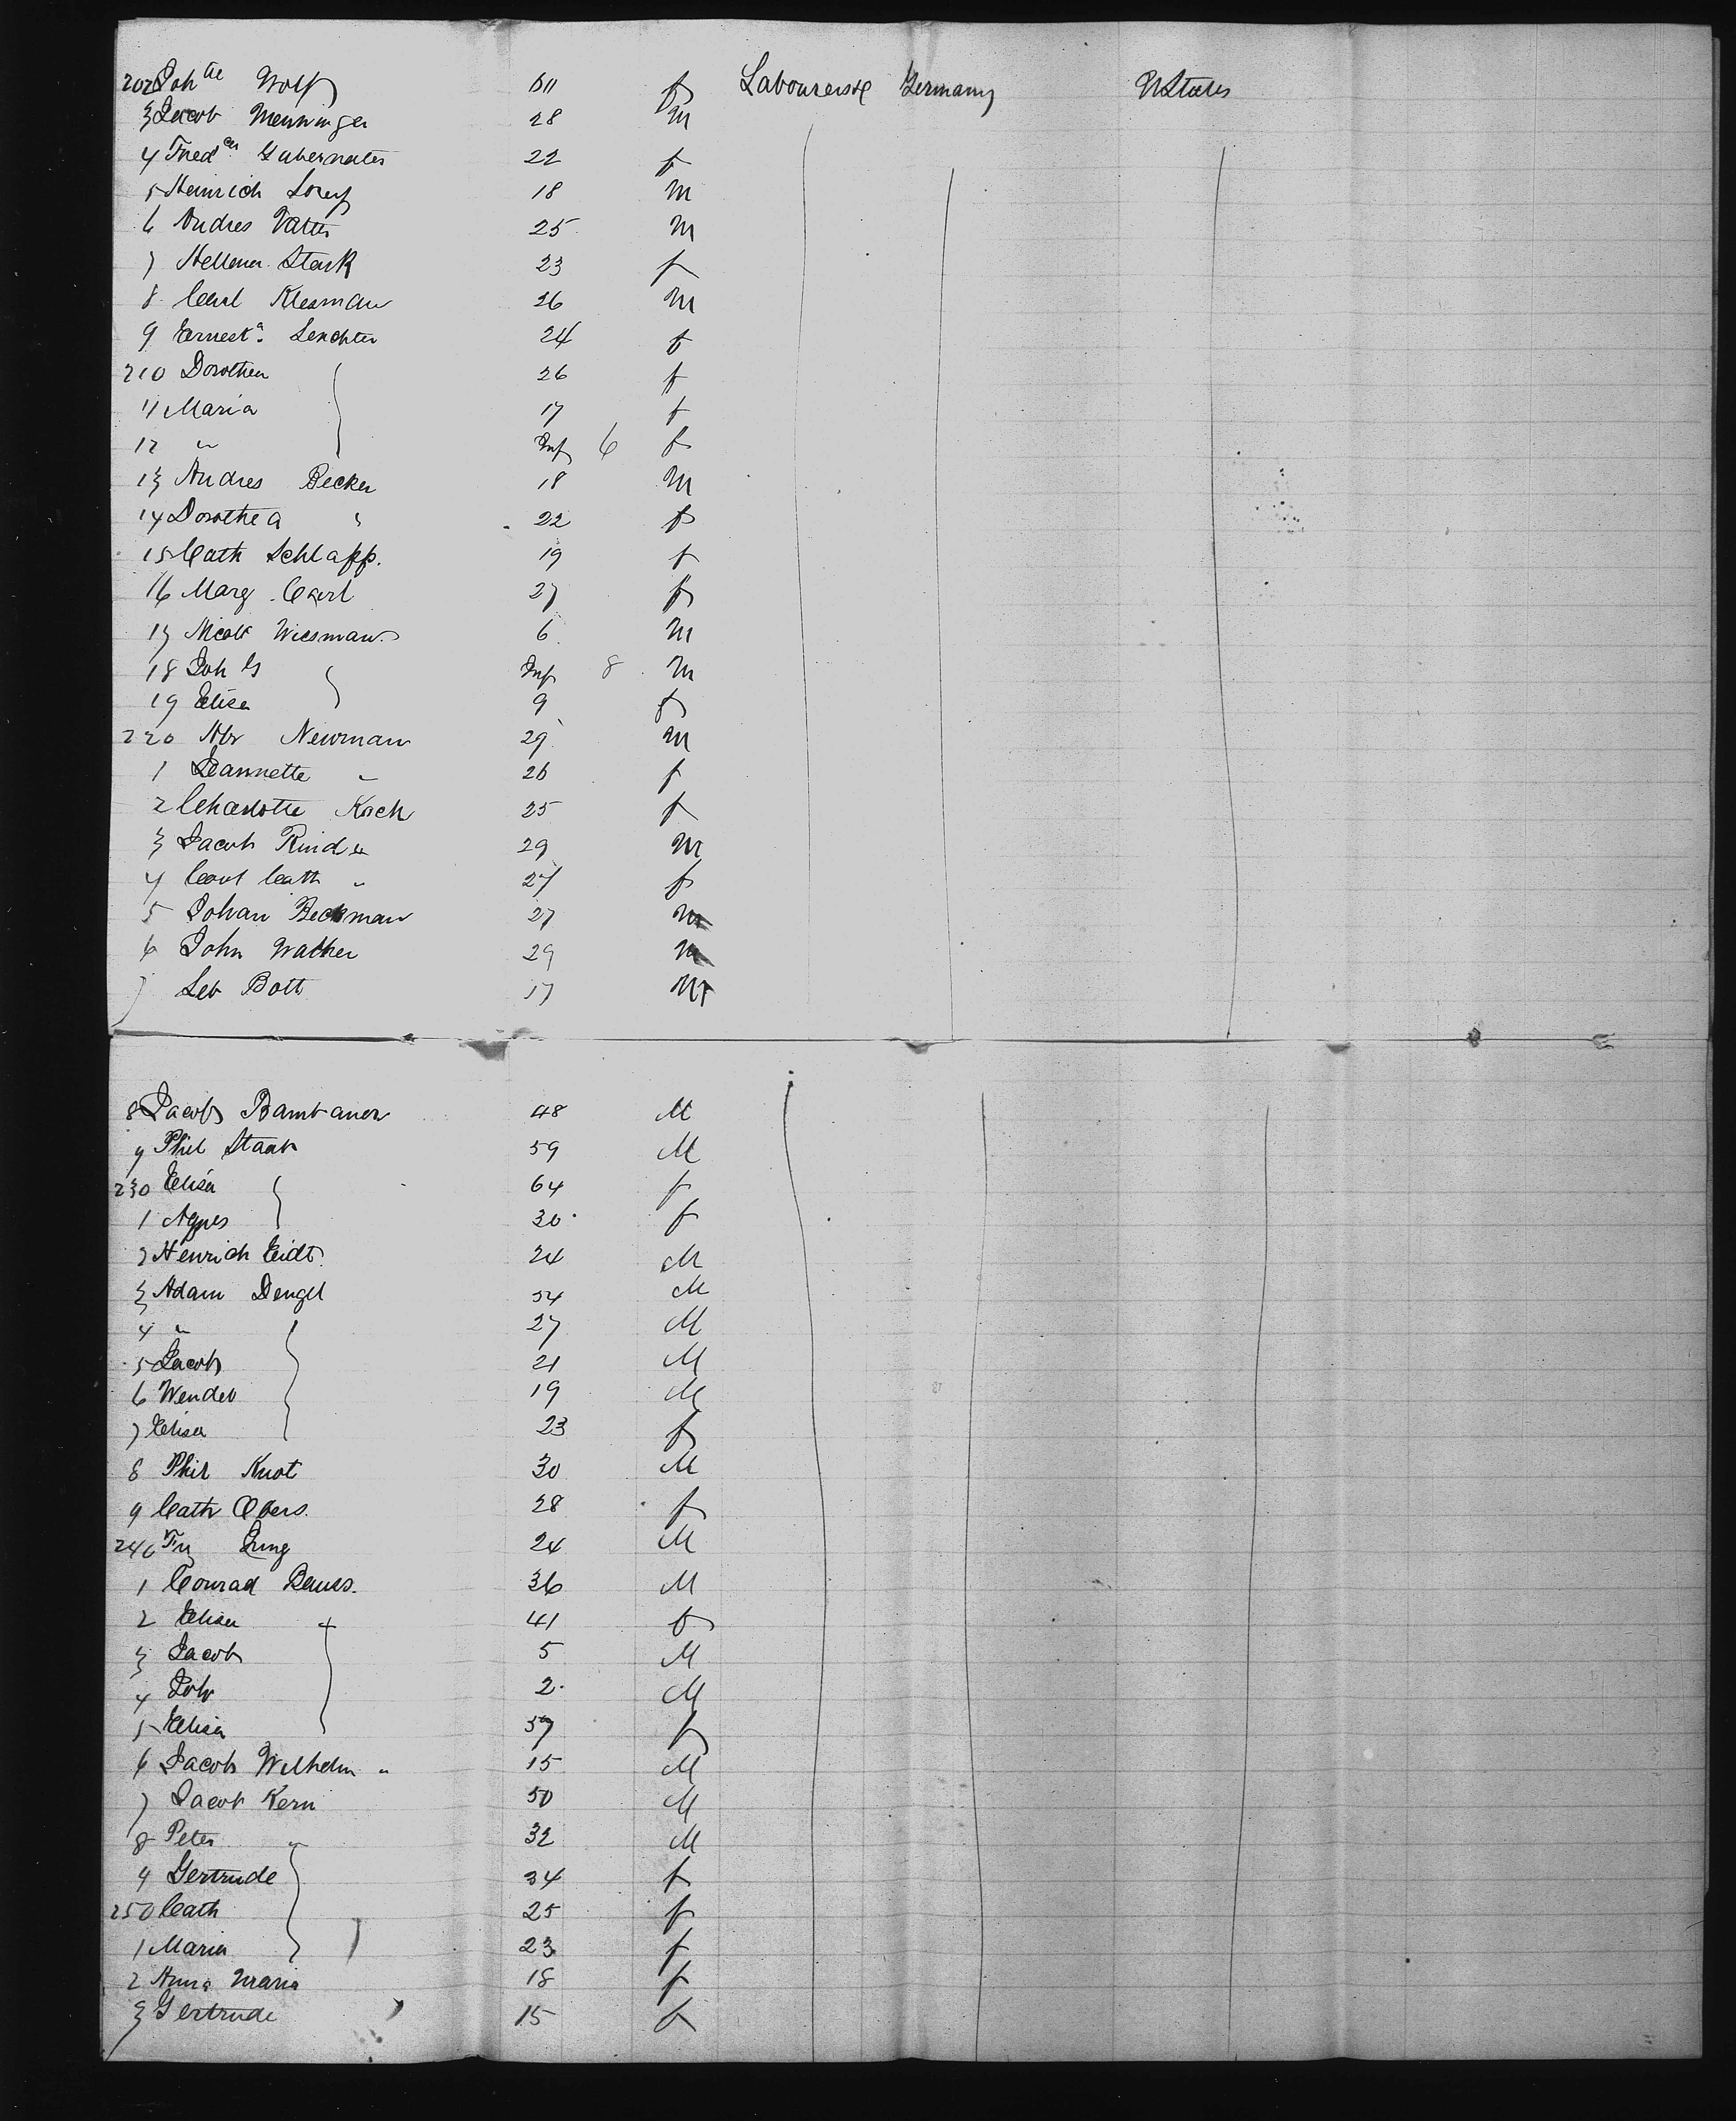 202 Joh ne Wolf 60 f Labourers &c Germany UStates
3 Jacob Menninger 28 M
4 Fred ca Gubernater 22 f
5 Heinrich 18 M
6 Andres Vatter 25 M
7 Hellena Stark 23 f
8 Carl Klesman 26 M
9 Ernest a Lenchter 24 f
210 Dorothea 26 f
11 Maria 17 f
12 " Inf 6 f
13 Andres Becker 18 M
14 Dorothea " 22 f
15 Cath Schlapp. 19 f
16 Marg. Carl 27 f
17 Nicol Wiesman 6 M
18 Joh Gg Inf 8 M
19 Elisa 9 f
220 Abr Newman 29 M
1 Jeannette " 26 f
2 Charlotte Koch 25 f
3 Jacob Rind 29 M
4 Cath " 27 f
5 Johan Beckman 27 M
6 John Walker 29 M
7 Seb Bott 17 M
8 Jacob Bambauer 48 M
9 Phil Staab 59 M
230 Elisa 64 f
1 Agnes 30 f
2 Henrich Eidt 24 M
3 Adam Dengel 54 M
4 " 27 M
5 Jacob 21 M
6 Wendel 19 M
7 Elisa 23 f
8 Phil Knot 30 M
9 Cath Obers. 28 f
240 Fr Jung 24 M
1 Conrad Bauss. 36 M
2 Elisa 41 f
3 Jacob 5 M
4 Joh 2 M
5 Elisa 57 f
6 Jacob Wilhelm " 15 M
7 Jacob Kern 50 M
8 Peter " 32 M
9 Gertrude 34 f
250 Cath 25 f
1 Maria 23 f
2 Anna Maria 18 f
3 Gertrude 15 f